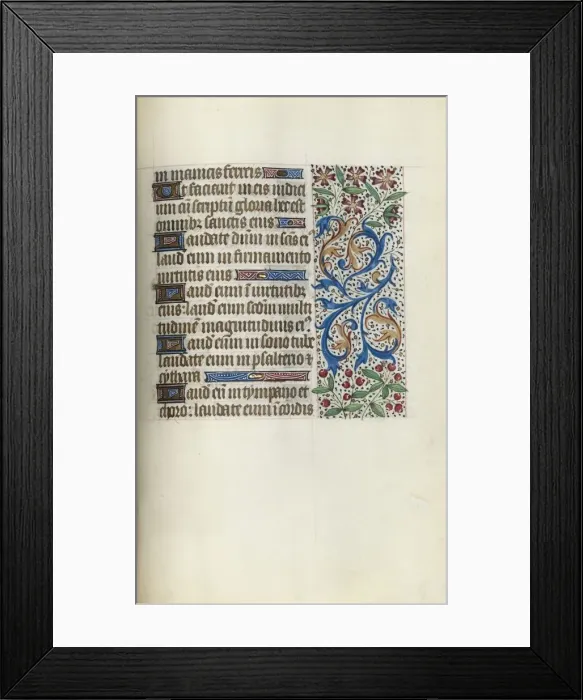 in manicis ferreis
Ut faciant in eis iudici
um cōscriptū gloria hec est
omnibȝ sanctis eius
Laudate dūm in scīs eiꝰ
laud eum in firmamento
uirtutis eius
Laud eum ī uirtutibȝ
eius: laud eum scdm̄ multi
tudinē magnitudinis eiꝰ
Laud eum in sono tube
laudate eum in psalterio ⁊
cythara
Laud eū in tympano et
choro: laudate eum ī cordis